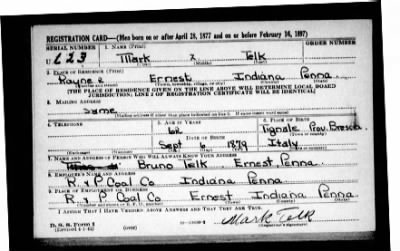 REGISTRATION CARD—(Men born on or after April 28, 1877 and on or before February 16, 1897)
SERIAL NUMBER 1. NAME (Print) ORDER NUMBER
U 623 Mark x Telk
(First) (Middle) (Last)
2. PLACE OF RESIDENCE (Print)
Rayne Ernest Indiana Penna
[THE PLACE OF RESIDENCE GIVEN ON THE LINE ABOVE WILL DETERMINE LOCAL BOARD
JURISDICTION; LINE 2 OF REGISTRATION CERTIFICATE WILL BE IDENTICAL]
3. MAILING ADDRESS
Same
4. TELEPHONE 5. AGE IN YEARS 6. PLACE OF BIRTH
62 Tignale Prov. Brescia
DATE OF BIRTH
Sept 6 1879 Italy
7. NAME AND ADDRESS OF PERSON WHO WILL ALWAYS KNOW YOUR ADDRESS
Bruno Telk Ernest Penna
8. EMPLOYER'S NAME AND ADDRESS
R. & P Coal Co Indiana Penna
9. PLACE OF EMPLOYMENT OR BUSINESS
R & P Coal Co Ernest Indiana Penna
I AFFIRM THAT I HAVE VERIFIED ABOVE ANSWERS AND THAT THEY ARE TRUE.
D. S. S. Form 1
(Revised 4-1-42) (Registrant's signature)
Mark Telk